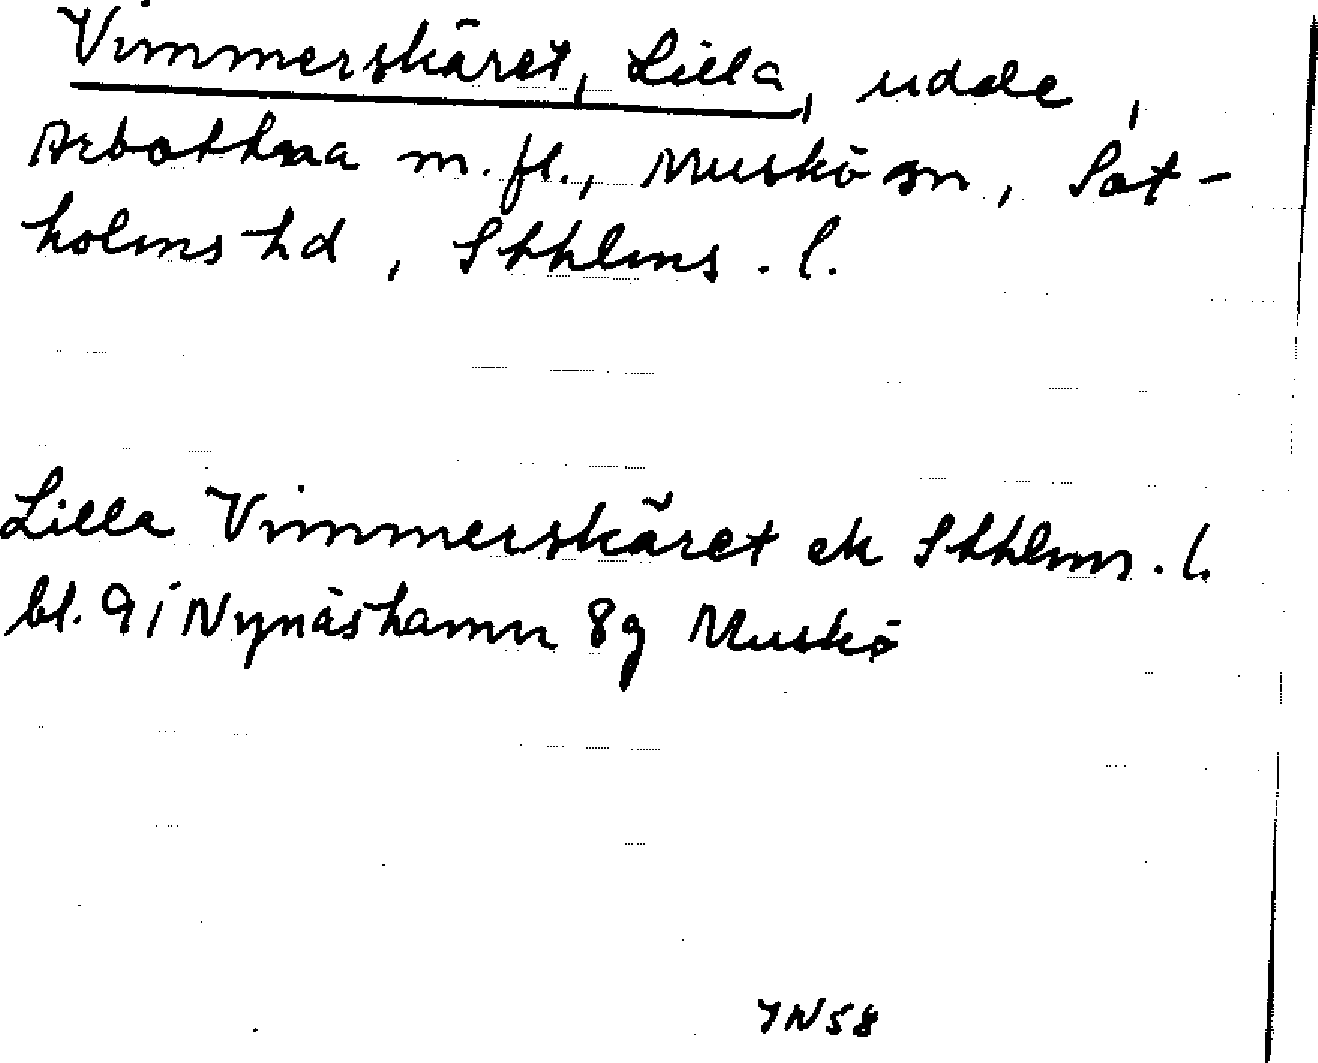 Vimmerskäret, Lilla, udde,
Arbottna m.fl., Muskö sn, Sot-
holms hd, Sthlms. l.
Lilla Vimmerskäret ek Sthlms. l.
bl. 91 Nynäshamn 8g Muskö
YN58